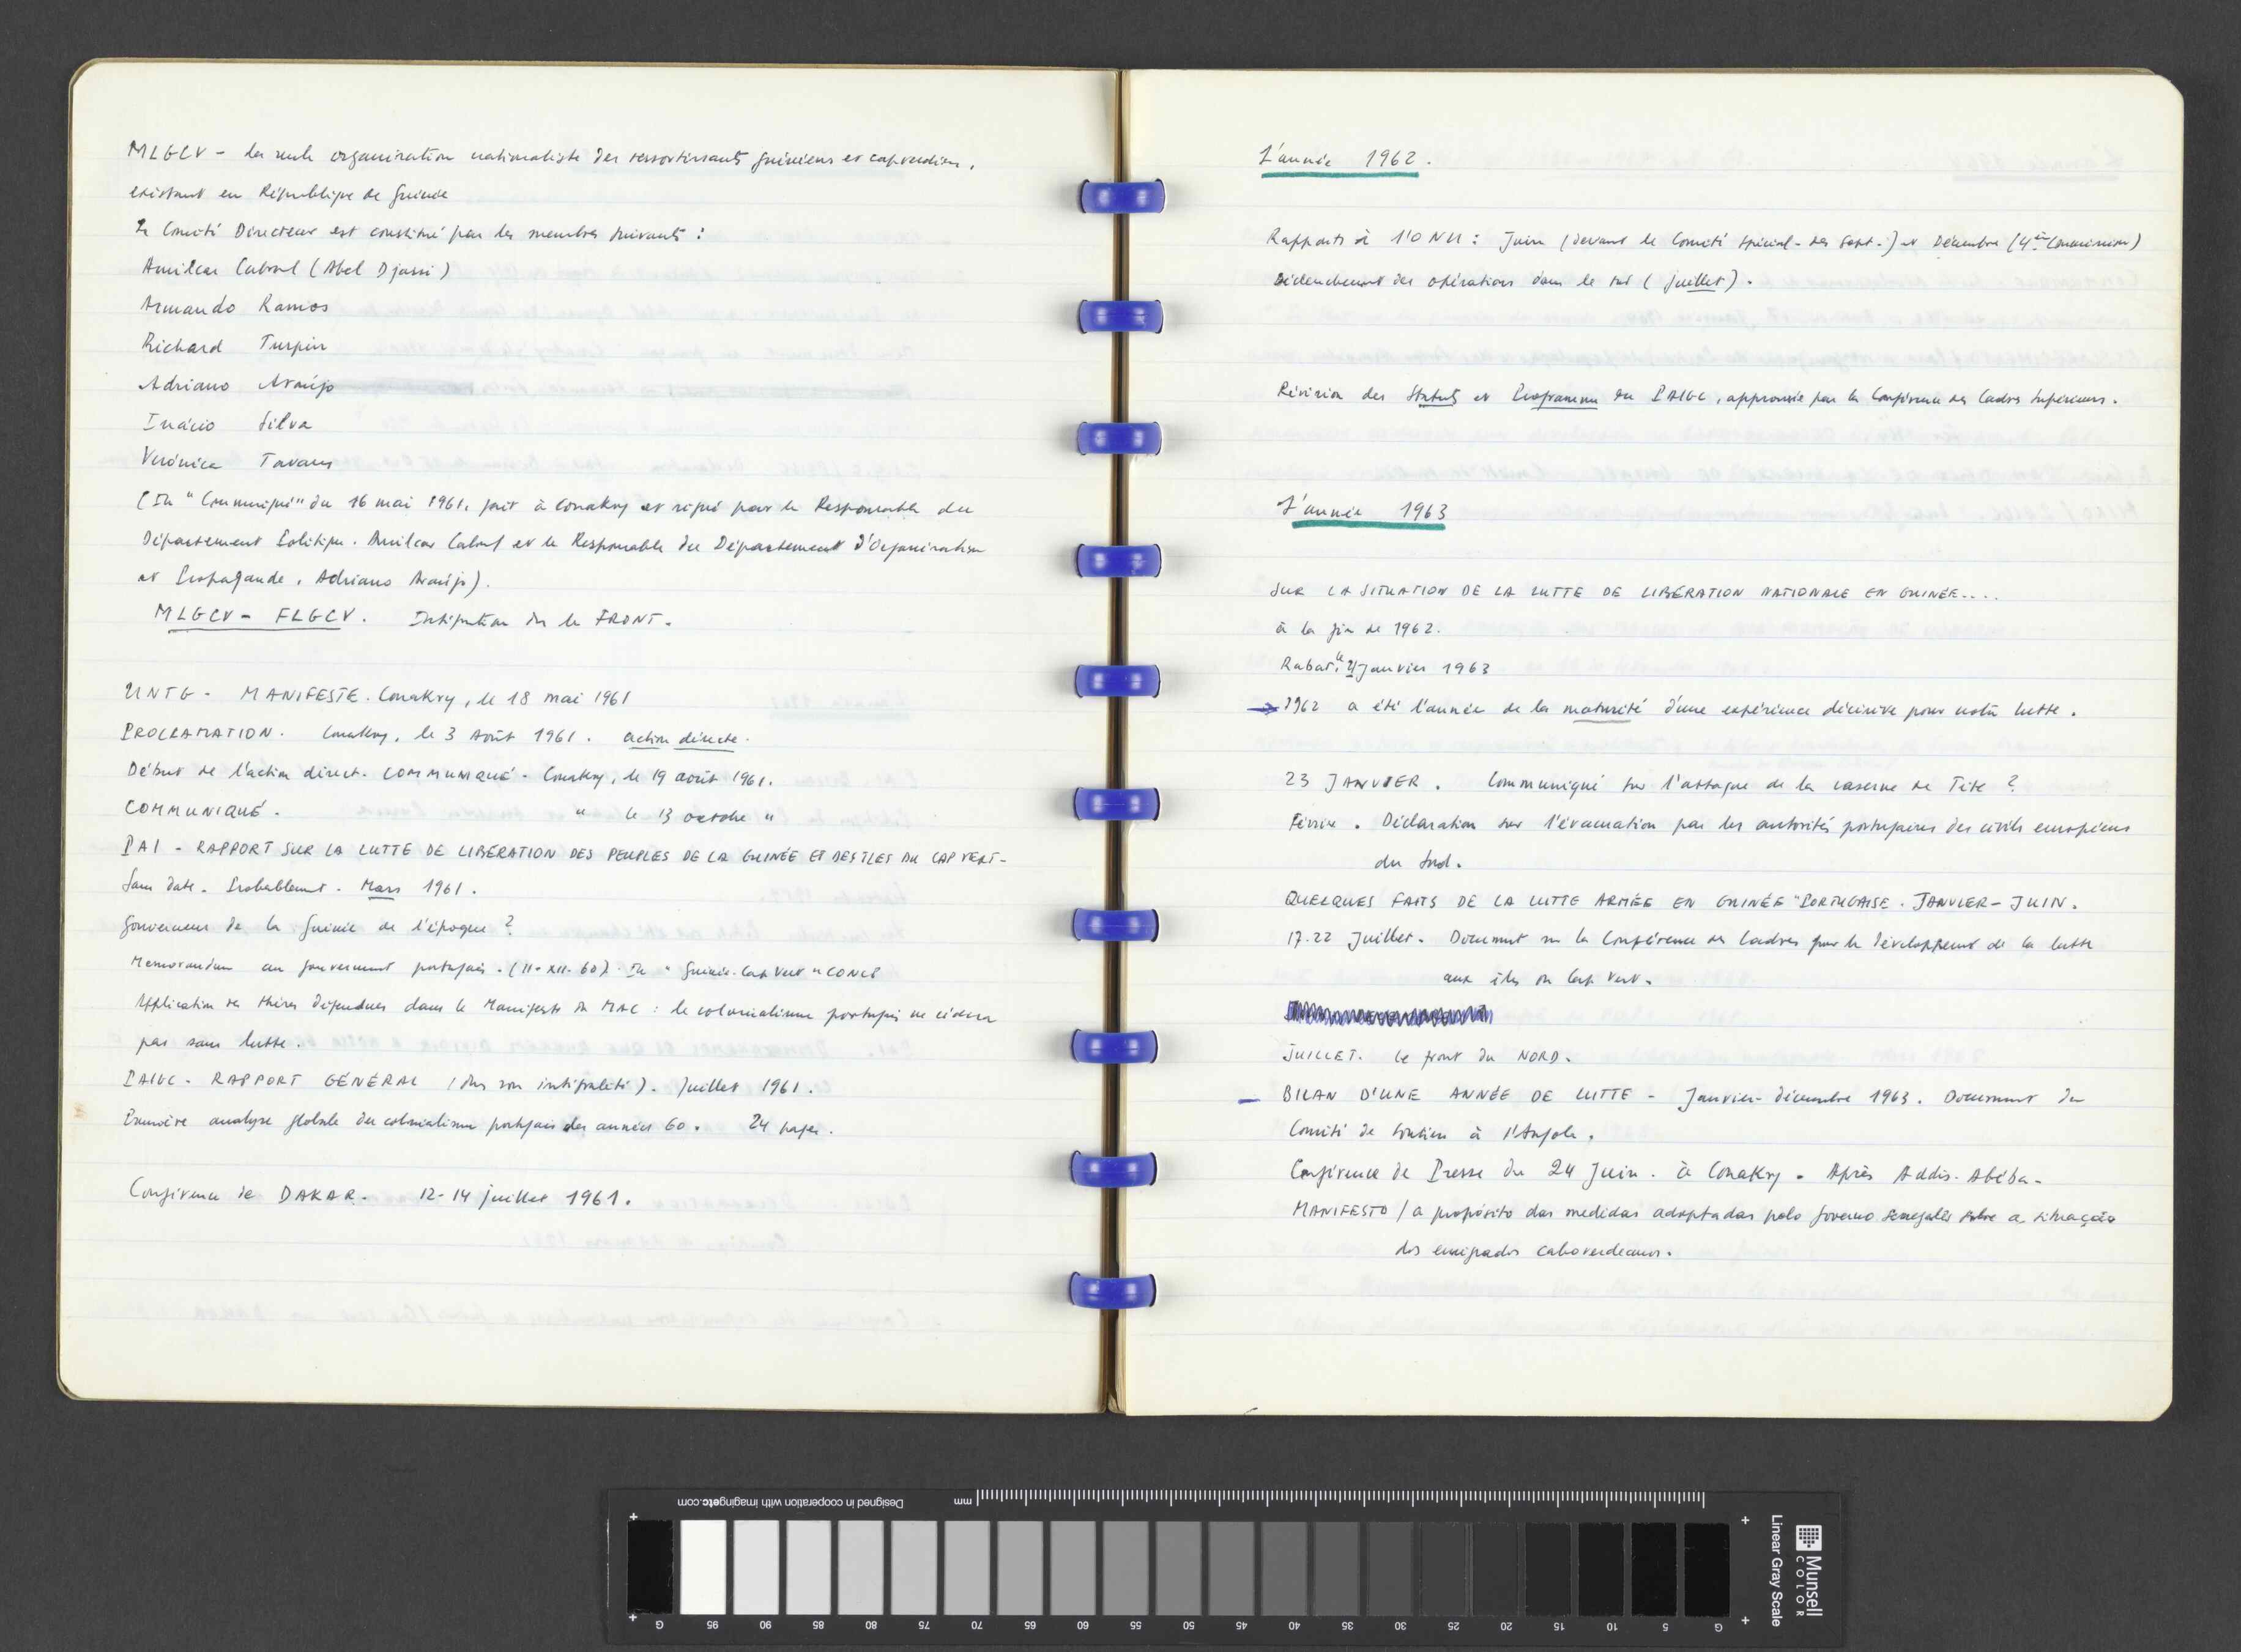 MLGCV - la seule organisation nationaliste des ressortissants guinéens et capverdiens,
existant en République de Guinée
Le Comité Directeur est constitué par les membres suivants :
Amilcar Cabral (Abel Djassi)
Armando Ramos
Richard Turpin
Adriano Araújo
Inácio Silva
Verónica Tavares
(In "Communiqué" du 16 mai 1961, fait à Conakry et signé par le Responsable du
Département Politique. Amilcar Cabral et le Responsable du Département d'Organisation
et Propagande, Adriano Araújo).
MLGCV - FLGCV. Intégration ds le FRONT.
UNTG - MANIFESTE. Conakry, le 18 mai 1961
PROCLAMATION. Conakry, le 3 Août 1961. action directe.
Début de l'action direct. COMMUNIQUÉ - Conakry, le 19 août 1961.
COMMUNIQUÉ. " le 13 octobre "
PAI - RAPPORT SUR LA LUTTE DE LIBERATION DES PEUPLES DE LA GUINÉE ET DES ILES DU CAP VERT -
Sans date. Probablement. Mars 1961.
Gouverneur de la Guinée de l'époque ?
Memorandum au gouvernement portugais. (11-XII-60). In "Guinée-Cap Vert" CONCP
Application des thèses défendues dans le Manifeste du MAC : le colonialisme portugais ne cédera
pas sans lutte.
PAIGC - RAPPORT GÉNÉRAL (ds son intégralité). Juillet 1961.
Première analyse globale du colonialisme portugais des années 60. 24 pages.
Conférence de DAKAR. 12-14 juillet 1961.
L'année 1962.
Rapports à l'ONU : Juin (devant le Comité spécial - des Sept -) et Décembre (4è Commission)
Déclenchement des opérations dans le sud (juillet).
Révision des Statuts et Programme du PAIGC, approuvée par la Conférence des Cadres Supérieurs.
L'année 1963
SUR LA SITUATION DE LA LUTTE DE LIBÉRATION NATIONALE EN GUINÉE....
à la fin de 1962.
Rabat, le 21 Janvier 1963
→ 1962 a été l'année de la maturité d'une expérience décisive pour notre lutte.
23 JANVIER. Communiqué sur l'attaque de la caserne de Tite ?
Février. Déclaration sur l'évacuation par les autorités portugaises des civils européens
du Sud.
QUELQUES FAITS DE LA LUTTE ARMÉE EN GUINÉE "PORTUGAISE. JANVIER - JUIN.
17-22 Juillet. Document sur la Conférence des Cadres pour le développement de la lutte
aux îles du Cap Vert.
JUILLET. Le front du NORD.
- BILAN D'UNE ANNÉE DE LUTTE - Janvier-décembre 1963. Document du
Comité de Soutien à l'Angola.
Conférence de Presse du 24 Juin. à Conakry. Après Addis-Abéba.
MANIFESTO / a propósito das medidas adoptadas pelo governo senegalês sobre a situação
dos emigrados caboverdeanos.
Designed in cooperation with imagingetc.com
mm
G 95 90 85 80 75 70 65 60 55 50 45 40 35 30 25 20 15 10 5 G
Munsell
COLOR
Linear Gray Scale